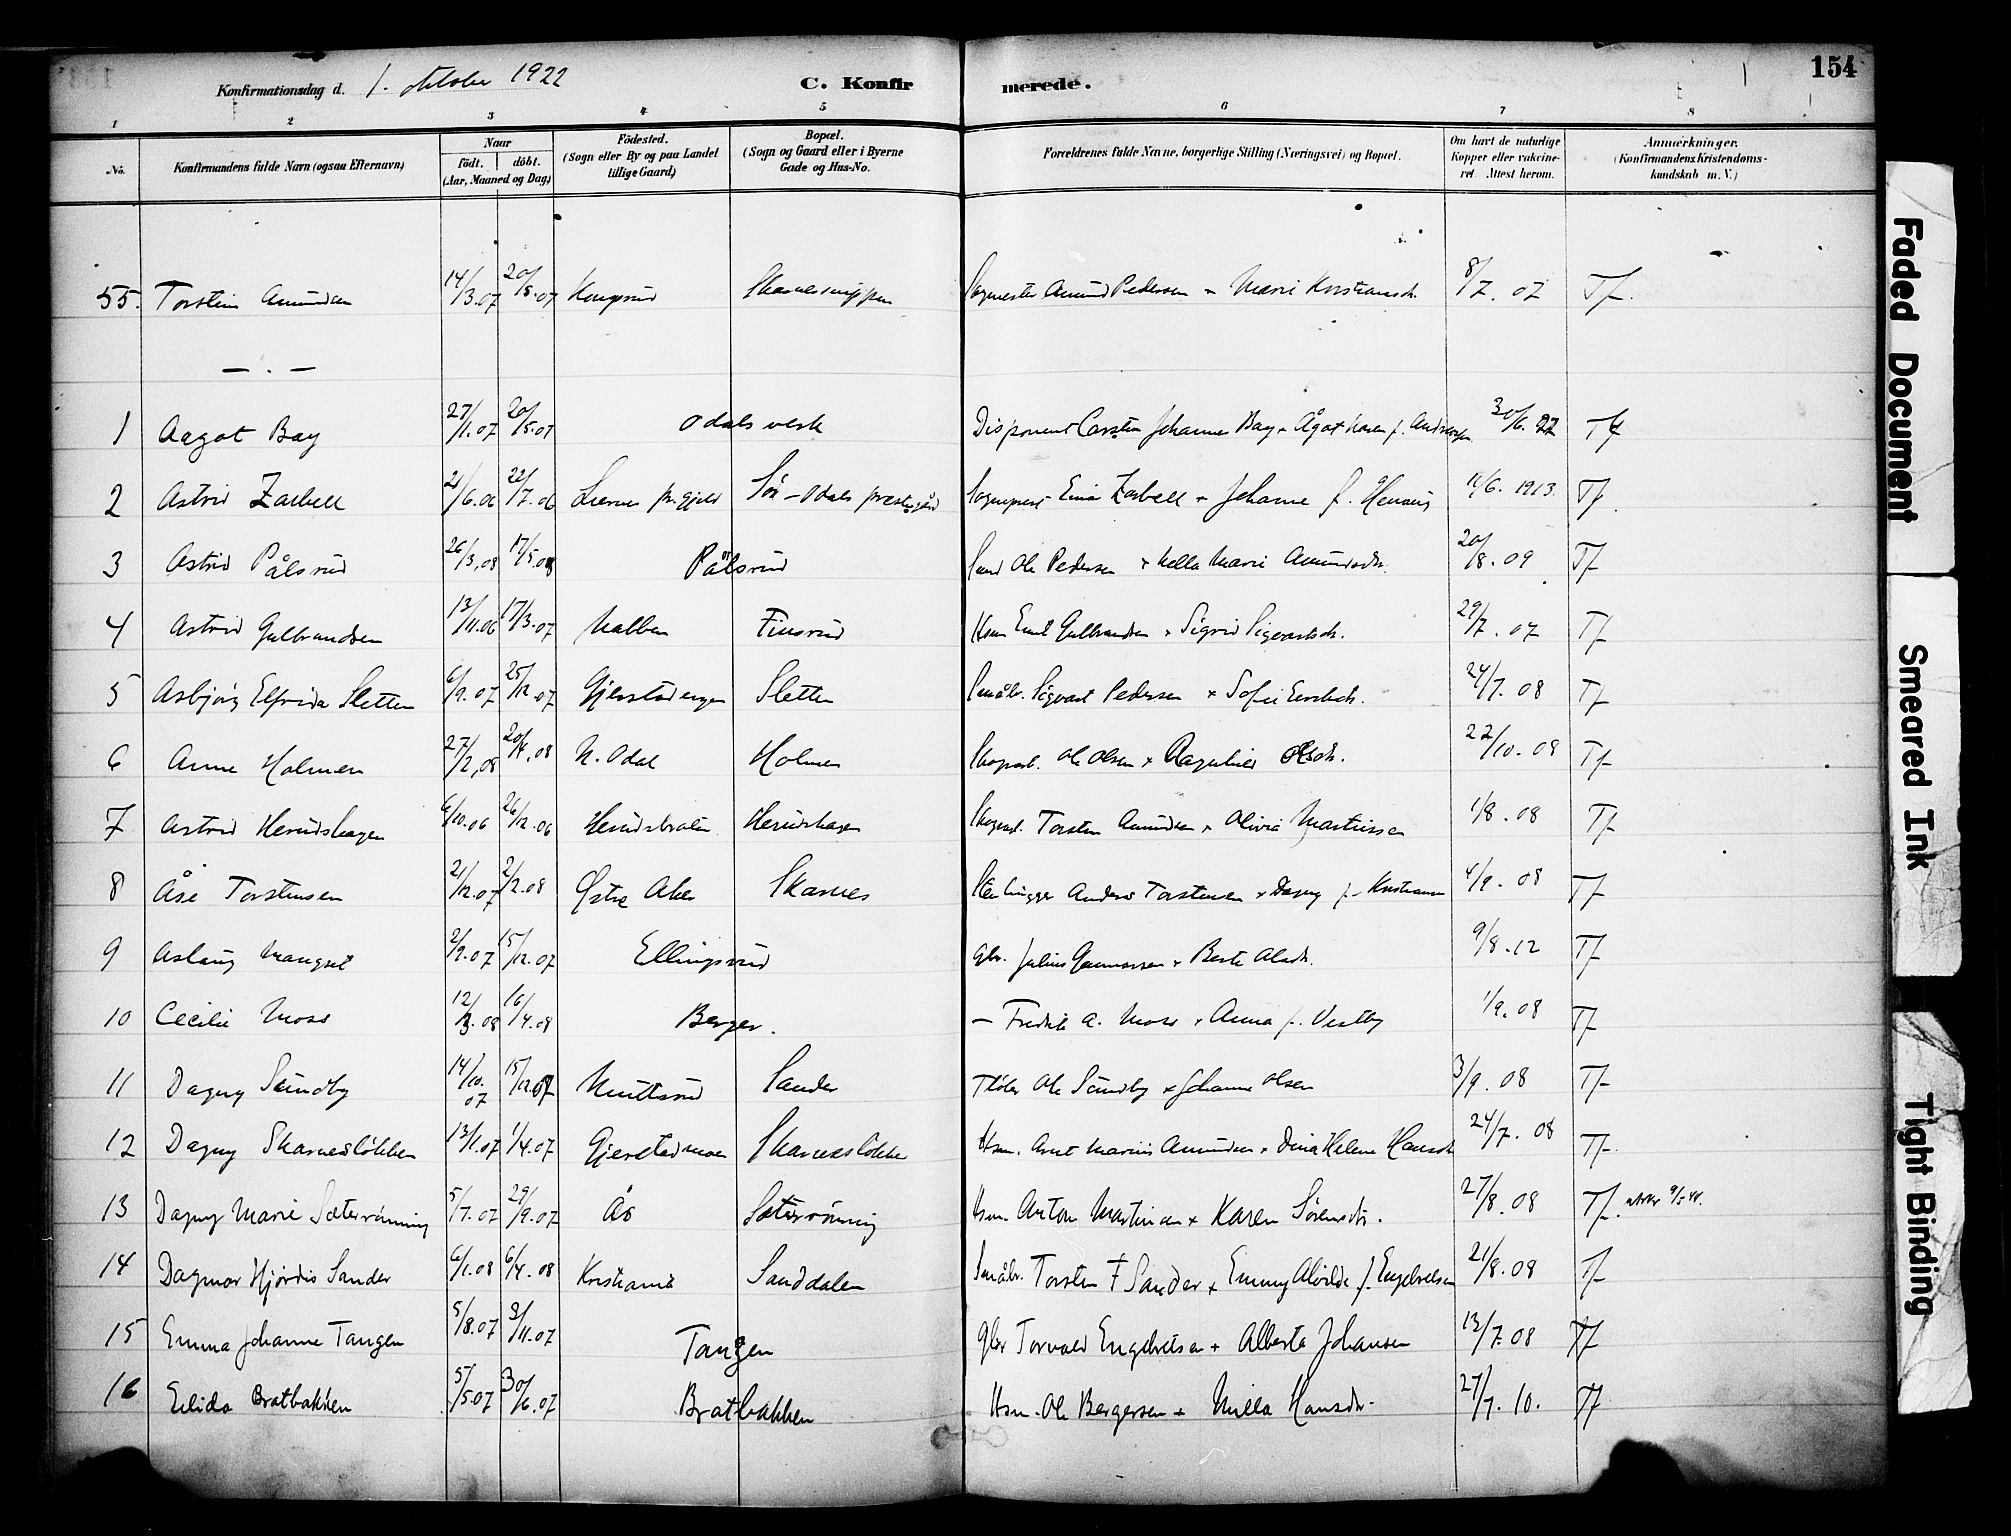 154
Konfirmationsdag d. 1. oktober 1922
C. Konfir merede.
1 2 3 4 5 6 7 8
No. Konfirmandens fulde Navn (ogsaa Efternavn) Naar født, døbt. (Aar, Maaned og Dag) Fødested. (Sogn eller By og paa Landet tillige Gaard) Bopæl. (Sogn og Gaard eller i Byerne Gade og Hus-No. Forældrenes fulde Navne, borgerlige Stilling (Næringsvei) og Bopæl. Om havt de naturlige Kopper eller vakcineret. Attest herom. Anmærkninger. (Konfirmandens Kristendomskundskab m. V.)
55. Torstein Amundsen 14/3.07 20/5.07 Kongsrud Skarnesnippen Amund Pedersen + Marie Kristiansdr. 8/7. 07 Tf.
— . —
1 Aagot Bay 27/1.07 20/5.07 Odals verk Disponent Carsten Johannes Bay + Ågot Karen f. 30/6. 22 Tf
2 Astrid Zarbell 21/6.06 22/7.06 Lierne pr.gjeld Sør-Odals prestegård Sogneprest Einar Zarbell + Johanne f. 10/6. 1913. Tf.
3 Astrid Pålsrud 26/3.08 17/5.08 Pålsrud Ole Pedersen + Mella Marie Amundsdr. 20/8. 09 Tf
4 Astrid Gulbrandsen 13/11.06 17/3.07 Malben Finsrud Hsm Emil Gulbrandsen + Sigrid Sigvartsdr. 29/7. 07 Tf
5 Asbjørg Elfrida Sletten 6/9.07 25/12.07 Gjerstadengen Sletten Småbr. Sigvart Pedersen + Sofie 24/7. 08 Tf
6 Anne Holmen 27/2.08 20/4.08 N. Odal Holmen Skogsarb. Ole Olsen + Ragnhild Olsdr. 22/10. 08 Tf
7 Astrid Herudshagen 6/10.06 26/12.06 Herudsbråten Herudshagen Skogsarb. Torsten Amundsen + Olivia Martinsen 1/8. 08 Tf
8 Åse Torstensen 21/12.07 2/2.08 Østre Aker Skarnes Stenhugger Anders Torstensen + Dagny f. Kristiansen 4/9. 08 Tf
9 Aslaug Mangset 2/9.07 15/12.07 Ellingsrud Gbr. Julius Gunnarsen + Berte Olsdr. 9/8. 12 Tf
10 Cecilie Moss 12/3.08 16/4.08 Berger. — Fredrik A. Moss + Anna f. Vestby 1/9. 08 Tf
11 Dagny Sundby 14/10.07 15/12.07 Knuttsrud Sander Ole Sundby + Johanne Olsen 3/9. 08 Tf
12 Dagny Skarnesløkken 13/1.07 1/4.07 Gjerstadmoen Skarnesløkken Hsm. Arnt Marius Amundsen + Dina Helene Hansdr 24/7. 08 Tf.
13 Dagny Marie Sæterrønning 5/7.07 29/9.07 Ås Sæterrønning Hsm. Anton Martinsen + Karen Sørensdr. 27/8. 08 Tf. 9/5 44.
14 Dagmar Hjørdis Sander 6/1.08 6/4.08 Kristiania Sanddalen Småbr. Torsten F Sander + Emmy Alvilde f. Engebretsen 21/8. 08 Tf
15 Emma Johanne Tangen 5/8.07 3/11.07 Tangen Gbr Torvald Engebretsen + Alberta Johansen 13/7. 08 Tf
16 Elida Bratbakken 5/5.07 30/6.07 Bratbakken Hsm. Ole Bergersen + Milla Hansdr. 27/7. 10. Tf
Faded Document
Smeared Ink
Tight Binding